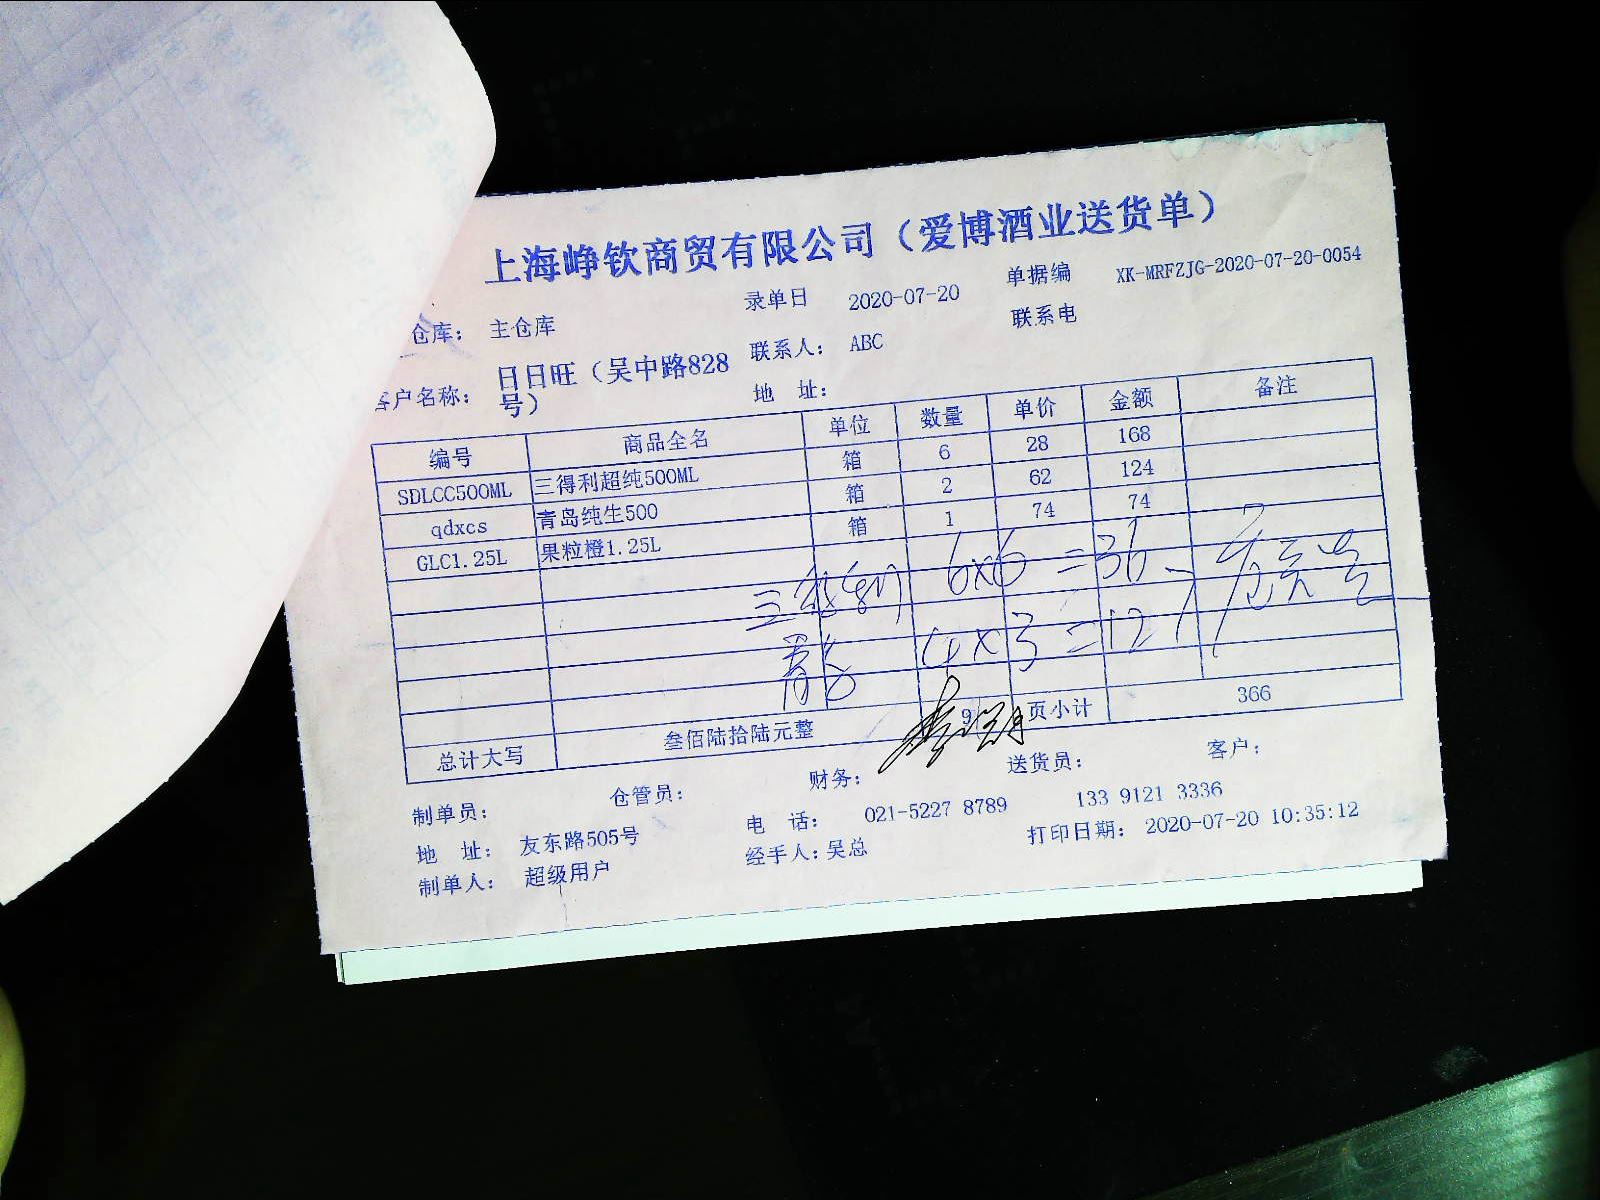 上海峥钦商贸有限公司（爱博酒业送货单）
仓库： 主仓库 录单日 2020-07-20 单据编 XK-MRFZJG-2020-07-20-0054
客户名称： 日日旺（吴中路828号） 联系人： ABC 联系电
地 址：
编号 商品全名 单位 数量 单价 金额 备注
SDLCC500ML 三得利超纯500ML 箱 6 28 168
qdxcs 青岛纯生500 箱 2 62 124
GLC1.25L 果粒橙1.25L 箱 1 74 74
6x6 =36
4x3 =12
总计大写 叁佰陆拾陆元整 9 页小计 366
制单员： 仓管员： 财务： 送货员： 客户：
地 址： 友东路505号 电 话： 021-5227 8789 133 9121 3336
制单人： 超级用户 经手人：吴总 打印日期： 2020-07-20 10:35:12